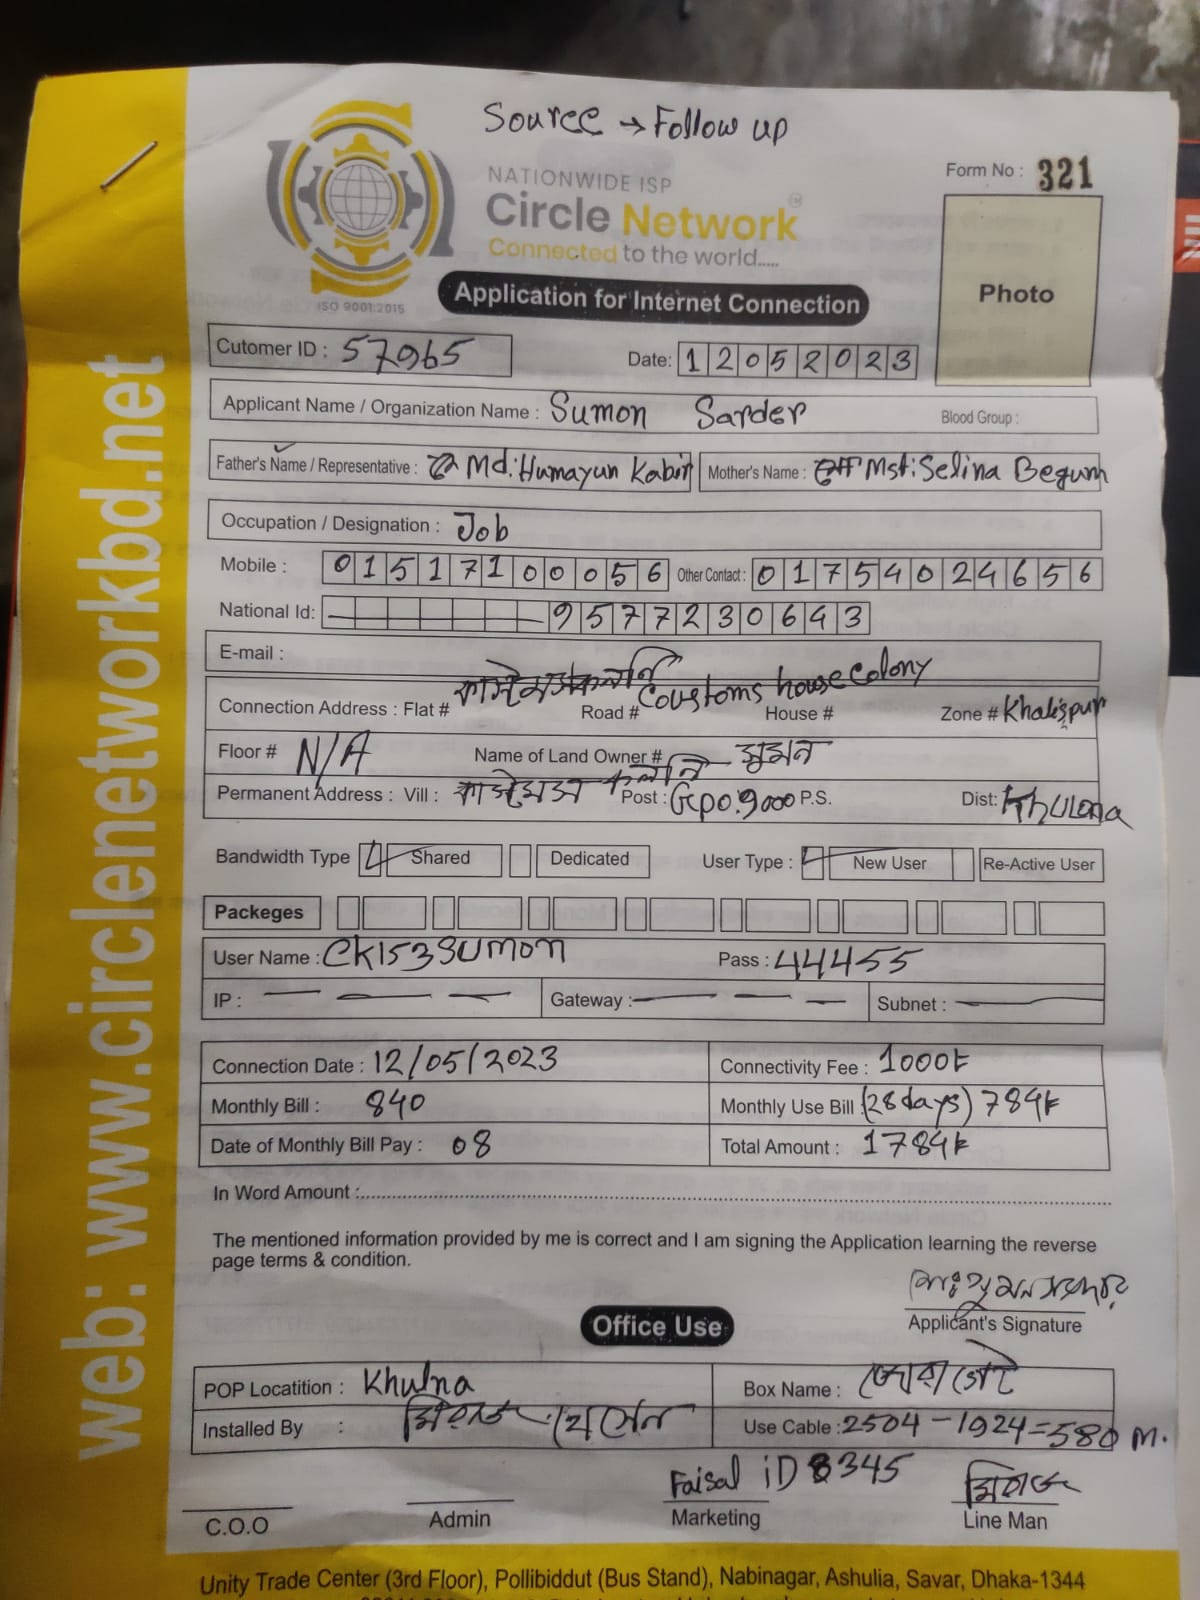 Source → Follow up
NATIONWIDE ISP
Circle Network
Connected to the world.....
ISO 9001:2015
Form No : 321
Photo
Application for Internet Connection
Cutomer ID : 57965 Date: 12052023
Applicant Name / Organization Name : Sumon Sarder Blood Group :
Father's Name / Representative : Md: Humayun Kabir Mother's Name : Mst: Selina Begum
Occupation / Designation : Job
Mobile : 01517100056 Other Contact : 01754024656
National Id: 9577230643
E-mail :
Connection Address : Flat # Road # Coustoms house colony House # Zone # Khalispur
Floor # N/A Name of Land Owner # সুমন
Permanent Address : Vill : Post : Gpo: 9000 P.S. Dist: Khulona
Bandwidth Type Shared Dedicated User Type : New User Re-Active User
Packeges
User Name : CK153sumon Pass : 44455
IP : Gateway : Subnet :
Connection Date : 12/05/2023 Connectivity Fee : 1000৳
Monthly Bill : 840 Monthly Use Bill : (28 days) 784৳
Date of Monthly Bill Pay : 08 Total Amount : 1784৳
In Word Amount :
The mentioned information provided by me is correct and I am signing the Application learning the reverse
page terms & condition.
Applicant's Signature
Office Use
POP Locatition : Khulna Box Name :
Installed By : Use Cable : 2504 - 1924 = 580 m.
Faisal iD 8345
C.O.O Admin Marketing Line Man
Unity Trade Center (3rd Floor), Pollibiddut (Bus Stand), Nabinagar, Ashulia, Savar, Dhaka-1344
web: www.circlenetworkbd.net